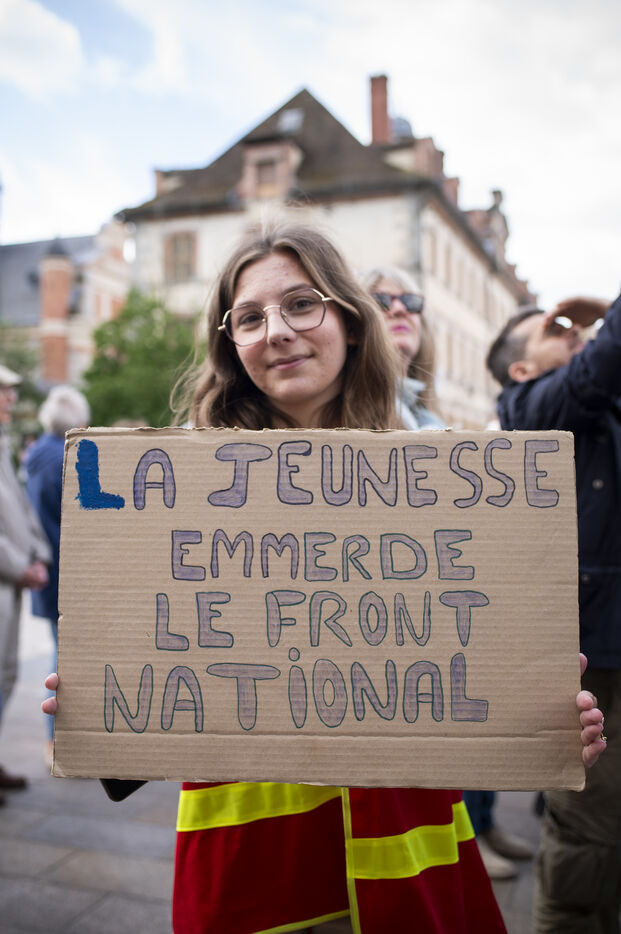 LA JEUNESSE
EMMERDE
LE FRONT
NATIONAL